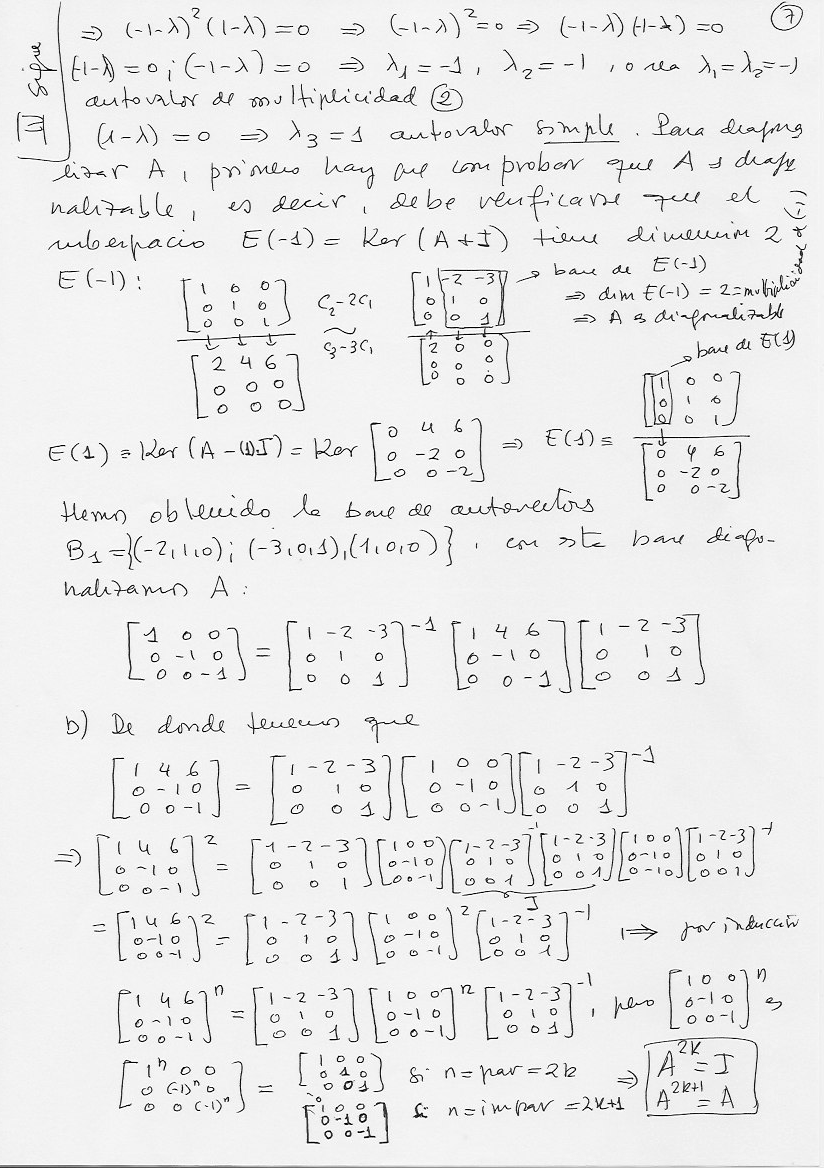 7
III Sigue
⇒ (-1-λ)² (1-λ) = 0 ⇒ (-1-λ)² = 0 ⇒ (-1-λ) (-1-λ) = 0
(-1-λ) = 0 ; (-1-λ) = 0 ⇒ λ₁ = -1, λ₂ = -1, o sea λ₁ = λ₂ = -1
autovalor de multiplicidad ②
(1-λ) = 0 ⇒ λ₃ = 1 autovalor simple. Para diagona
lizar A, primero hay que comprobar que A es diago
nalizable, es decir, debe verificarse que el
subespacio E(-1) = Ker (A+I) tiene dimension 2
E(-1):
[1 0 0; 0 1 0; 0 0 1]
[2 4 6; 0 0 0; 0 0 0]
C₂-2C₁
~
C₃-3C₁
[1 -2 -3; 0 1 0; 0 0 1]
[2 0 0; 0 0 0; 0 0 0]
→ base de E(-1)
⇒ dim E(-1) = 2 = multiplicidad de (-1)
⇒ A es diagonalizable
base de E(1)
E(1) ≡ Ker (A-(1)I) = Ker [0 4 6; 0 -2 0; 0 0 -2] ⇒ E(1) ≡ [1 0 0; 0 1 0; 0 0 1]
[0 4 6; 0 -2 0; 0 0 -2]
Hemos obtenido la base de autovectores
B₁ = {(-2,1,0); (-3,0,1),(1,0,0)}, con esta base diago-
nalizamos A:
[1 0 0; 0 -1 0; 0 0 -1] = [1 -2 -3; 0 1 0; 0 0 1]⁻¹ [1 4 6; 0 -1 0; 0 0 -1] [1 -2 -3; 0 1 0; 0 0 1]
b) De donde tenemos que
[1 4 6; 0 -1 0; 0 0 -1] = [1 -2 -3; 0 1 0; 0 0 1] [1 0 0; 0 -1 0; 0 0 -1] [1 -2 -3; 0 1 0; 0 0 1]⁻¹
⇒ [1 4 6; 0 -1 0; 0 0 -1]² = [1 -2 -3; 0 1 0; 0 0 1] [1 0 0; 0 -1 0; 0 0 -1] [1 -2 -3; 0 1 0; 0 0 1]⁻¹ [1 -2 -3; 0 1 0; 0 0 1] [1 0 0; 0 -1 0; 0 -1 0] [1 -2 -3; 0 1 0; 0 0 1]⁻¹
I
= [1 4 6; 0 -1 0; 0 0 -1]² = [1 -2 -3; 0 1 0; 0 0 1] [1 0 0; 0 -1 0; 0 0 -1]² [1 -2 -3; 0 1 0; 0 0 1]⁻¹ ⇒ por inducción
[1 4 6; 0 -1 0; 0 0 -1]ⁿ = [1 -2 -3; 0 1 0; 0 0 1] [1 0 0; 0 -1 0; 0 0 -1]ⁿ [1 -2 -3; 0 1 0; 0 0 1]⁻¹, pero [1 0 0; 0 -1 0; 0 0 -1]ⁿ es
[1ⁿ 0 0; 0 (-1)ⁿ 0; 0 0 (-1)ⁿ] = [1 0 0; 0 1 0; 0 0 1] si n = par = 2k
[1 0 0; 0 -1 0; 0 0 -1] si n = impar = 2k+1
⇒ A²ᵏ = I
A²ᵏ⁺¹ = A